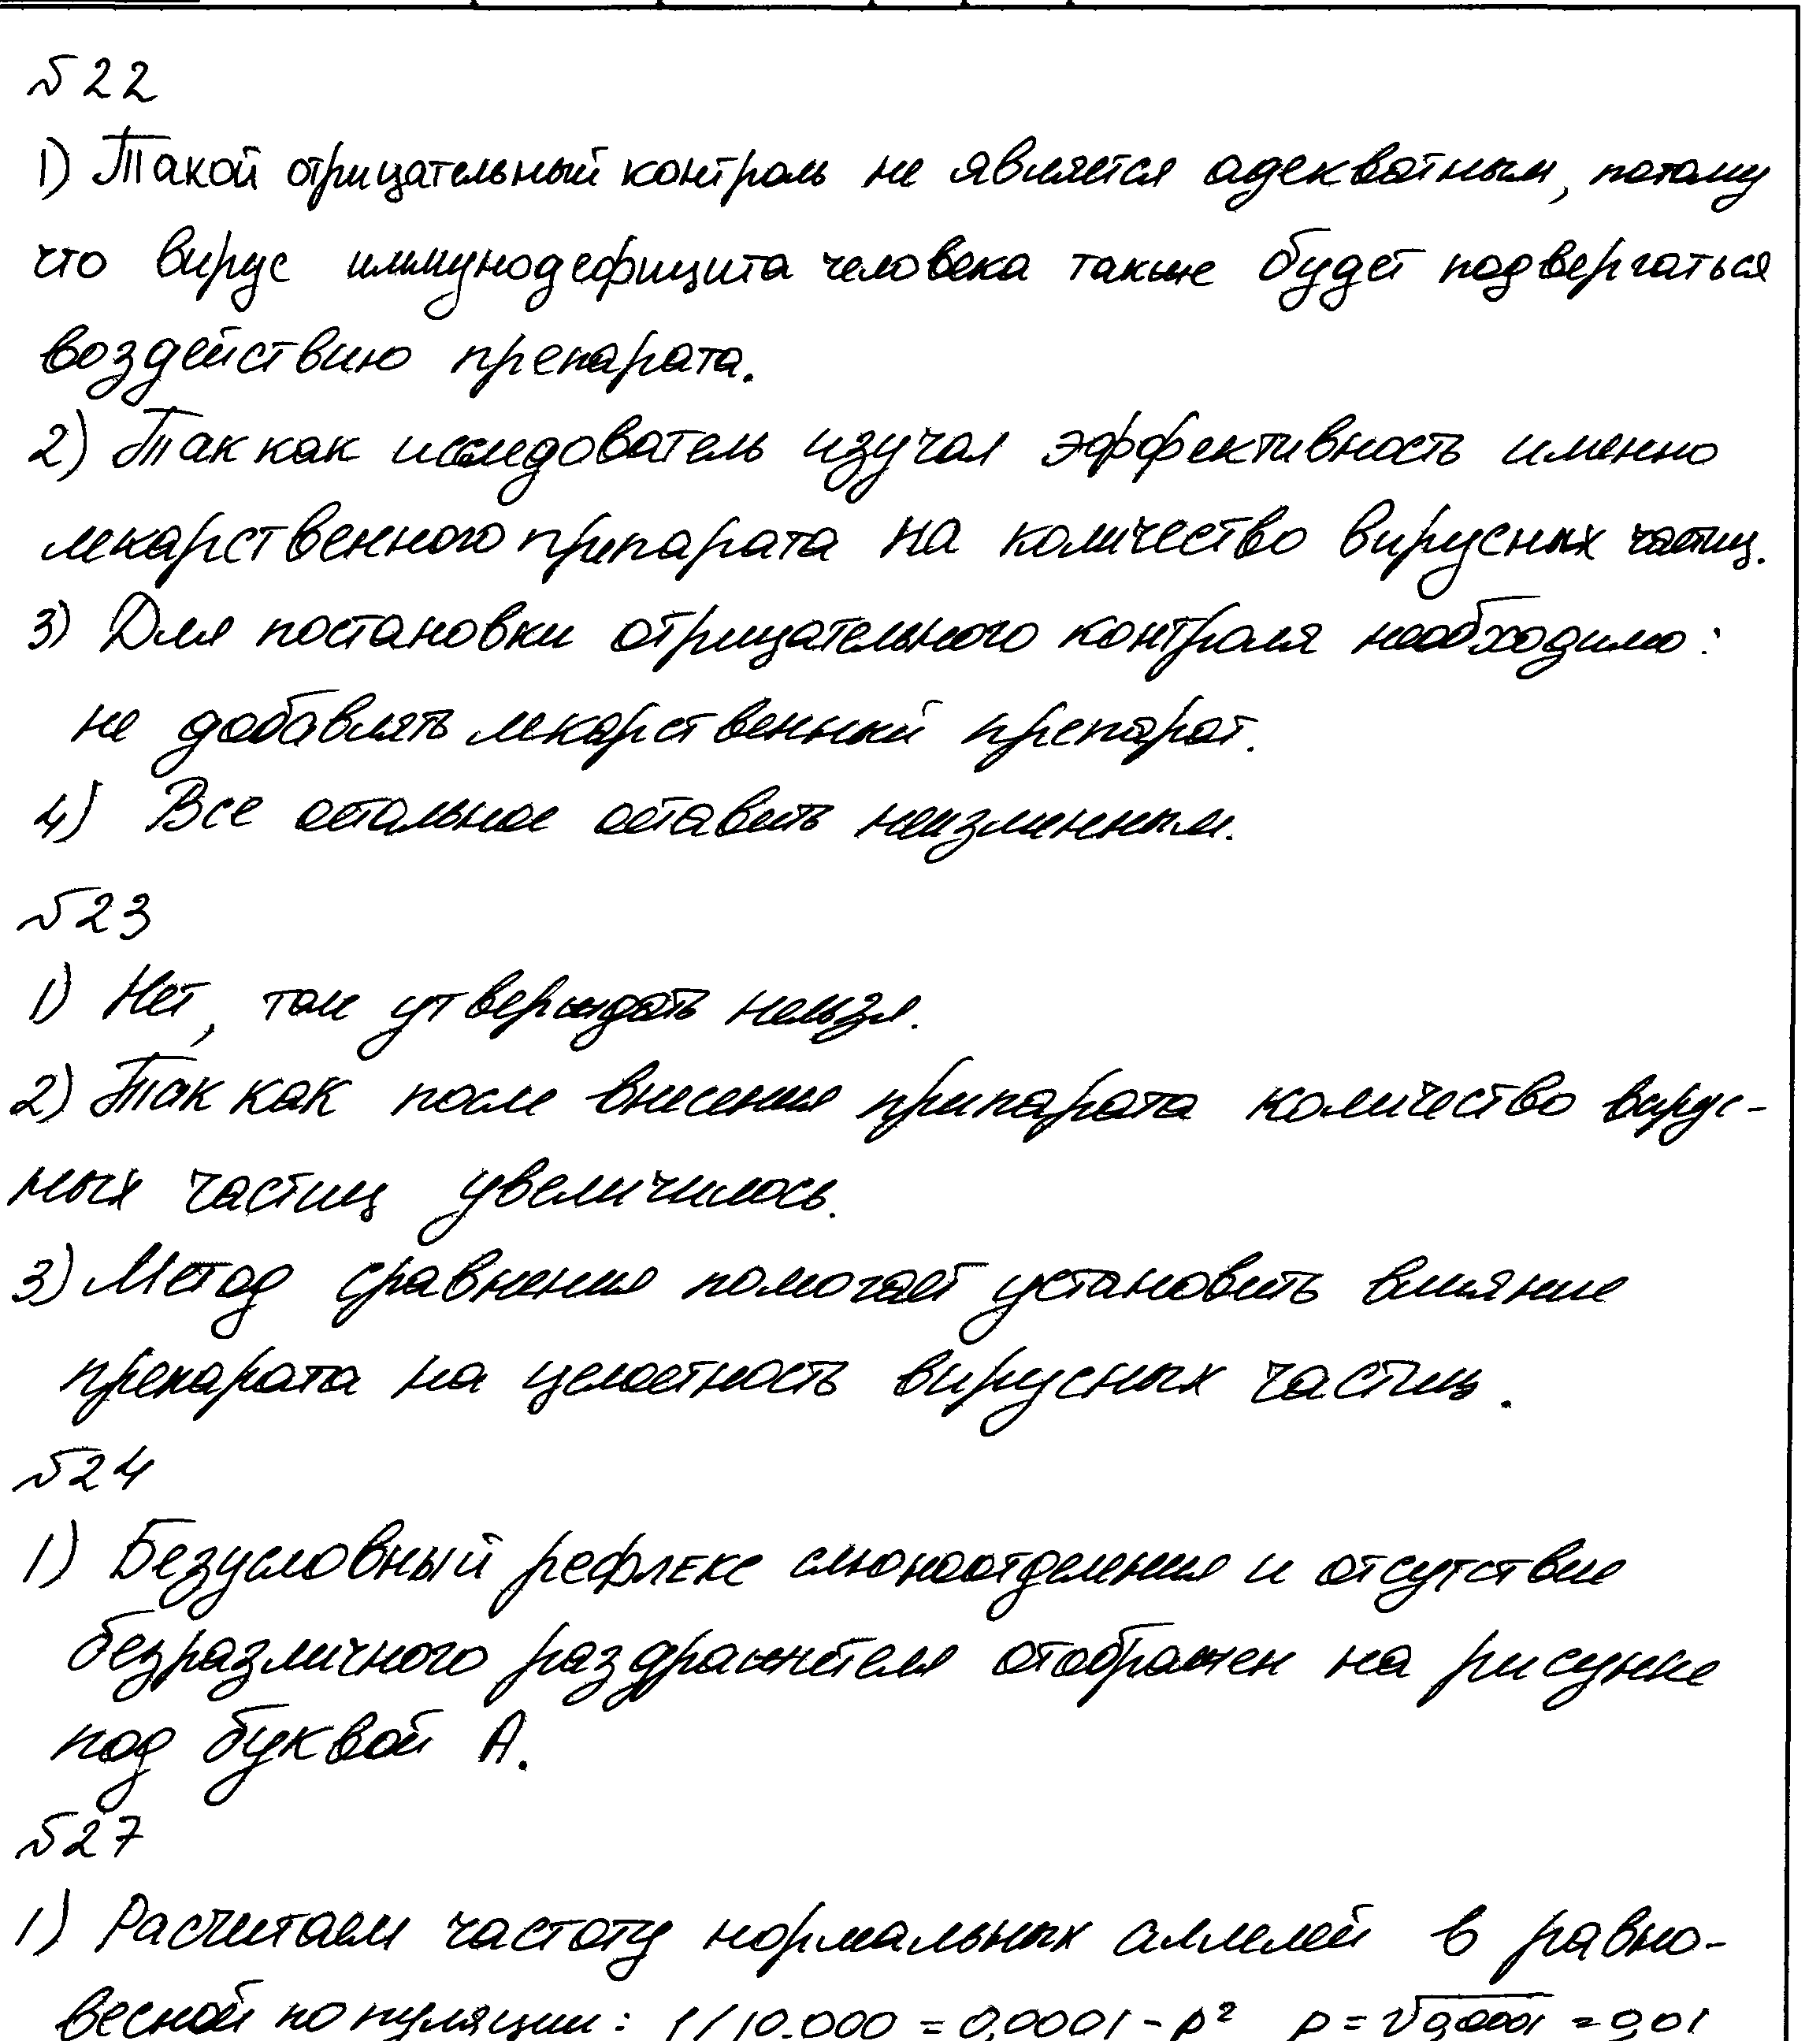 №22
1) Такой отрицательный контроль не является адекватным, потому
что вирус иммунодефицита человека также будет подвергаться
воздействию препарата.
2) Так как исследователь изучал эффективность именно
лекарственного припарата на количество вирусных частиц.
3) Для постановки отрицательного контроля необходимо:
не добавлять лекарственный препарат.
4) Все остальное оставить неизменным.
№23
1) Нет, так утверждать нельзя.
2) Так как после внесения припарата количество вирус-
ных частиц увеличилось.
3) Метод сравнения помогает установить влияние
препарата на целостность вирусных частиц.
№24
1) Безусловный рефлекс слюноотделения и отсутствие
безразличного раздражителя отображен на рисунке
под буквой А.
№27
1) Расчитаем частоту нормальных аллелей в равно-
весной популяции: 1/10.000 = 0,0001 - p² p = √0,0001 = 0,01